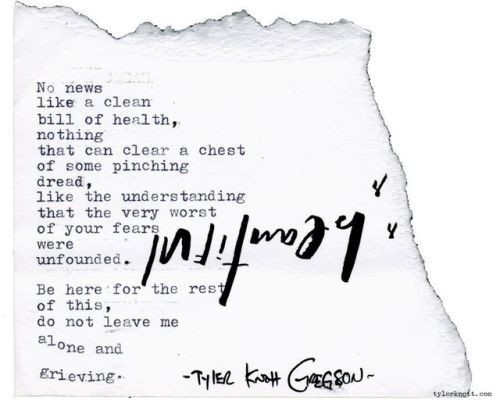 No news
like a clean
bill of health,
nothing
that can clear a chest
of some pinching
dread,
like the understanding
that the very worst
of your fears
were
unfounded.
beautiful
Be here for the rest
of this,
do not leave me
alone and
grieving.
-TYLER KNOTT GREGSON-
tylerknott.com